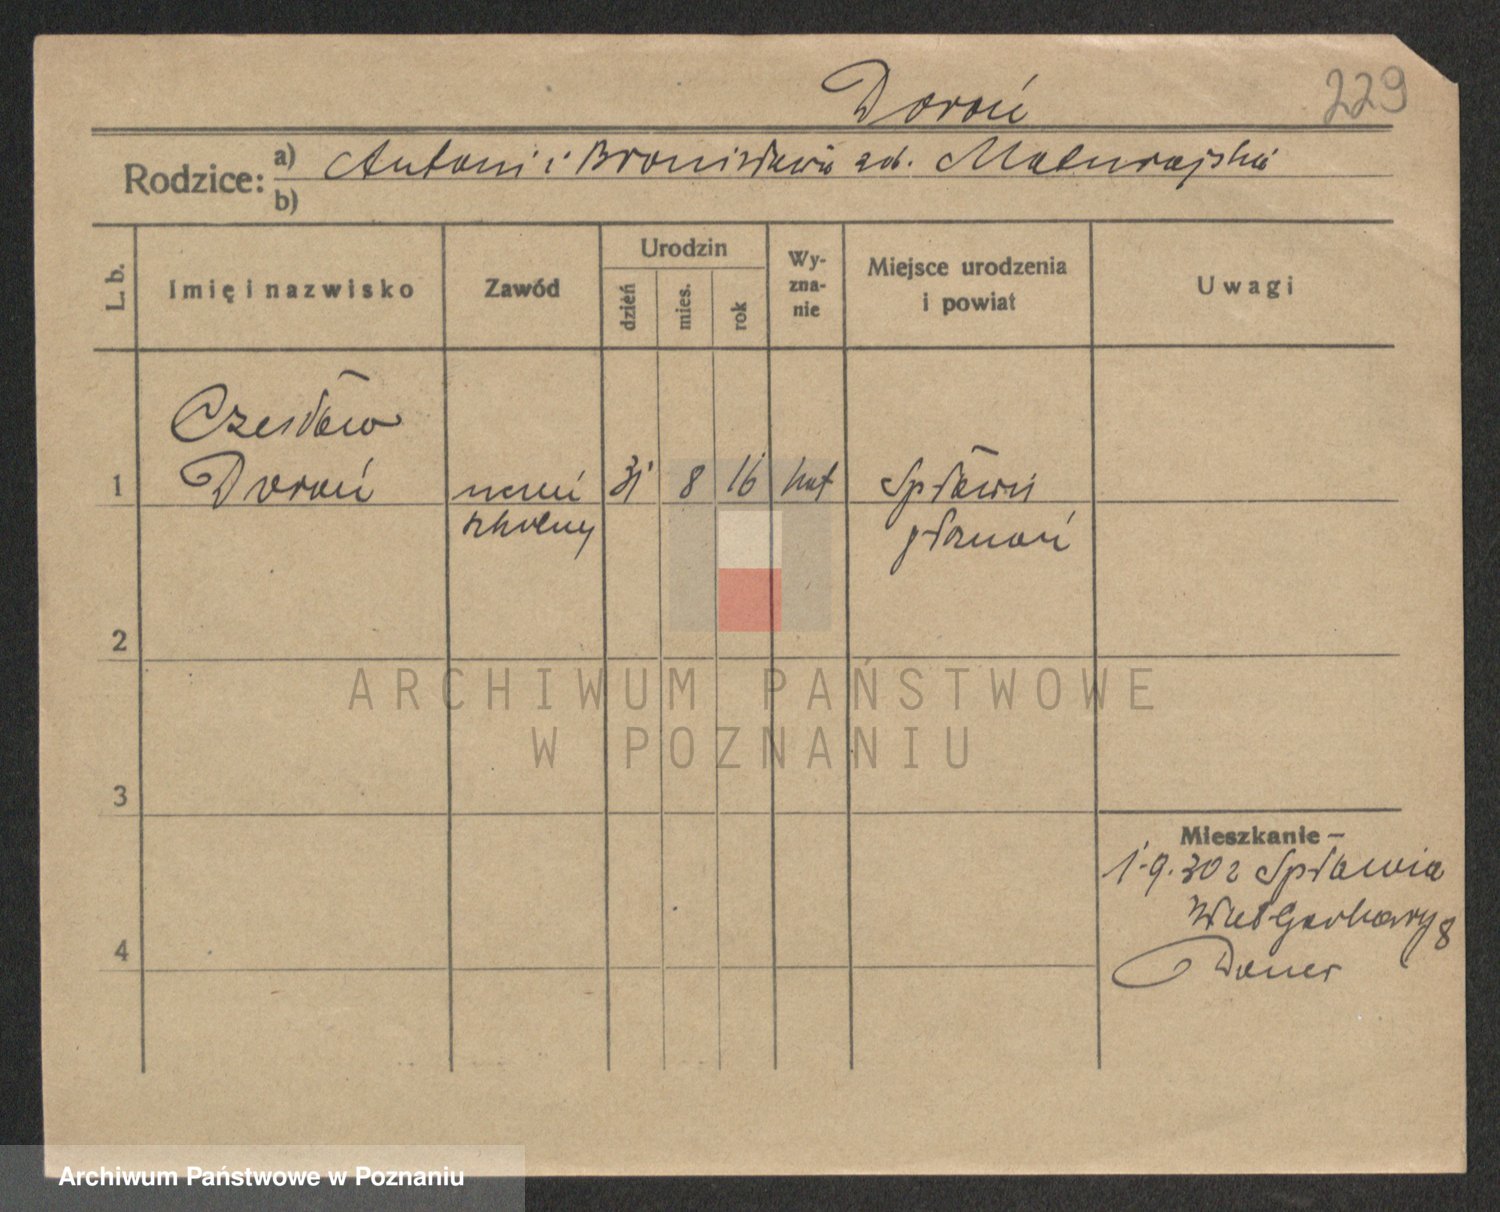 Doroń
229
Rodzice: a) Antoni i Bronisława zd. Maturajska
b)
L. b.
Imię i nazwisko
Zawód
Urodzin
dzień
mies.
rok
Wy-
zna-
nie
Miejsce urodzenia
i powiat
Uwagi
Czesław
1 Doroń uczeń 31 8 16 kat Spławie
szkolny
p. Poznań
2
ARCHIWUM PAŃSTWOWE
W POZNANIU
3
Mieszkanie –
1.9.30 z Spławia
8
4
Archiwum Państwowe w Poznaniu